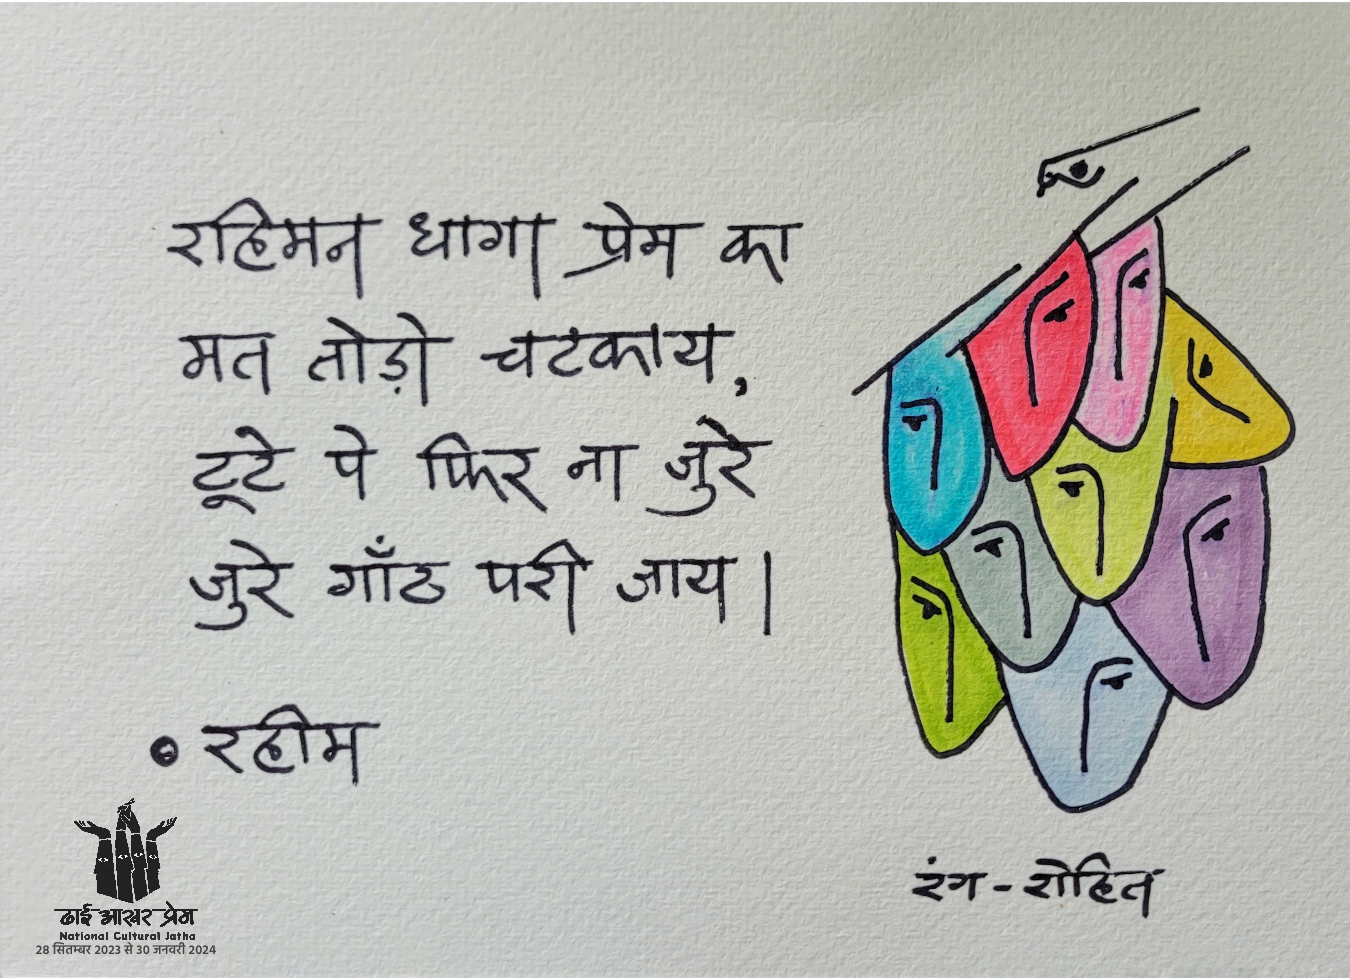 रहिमन धागा प्रेम का
मत तोड़ो चटकाय,
टूटे पे फिर ना जुरे
जुरे गाँठ परी जाय।
• रहीम
रंग - रोहित
ढाई आखर प्रेम
National Cultural Jatha
28 सितम्बर 2023 से 30 जनवरी 2024